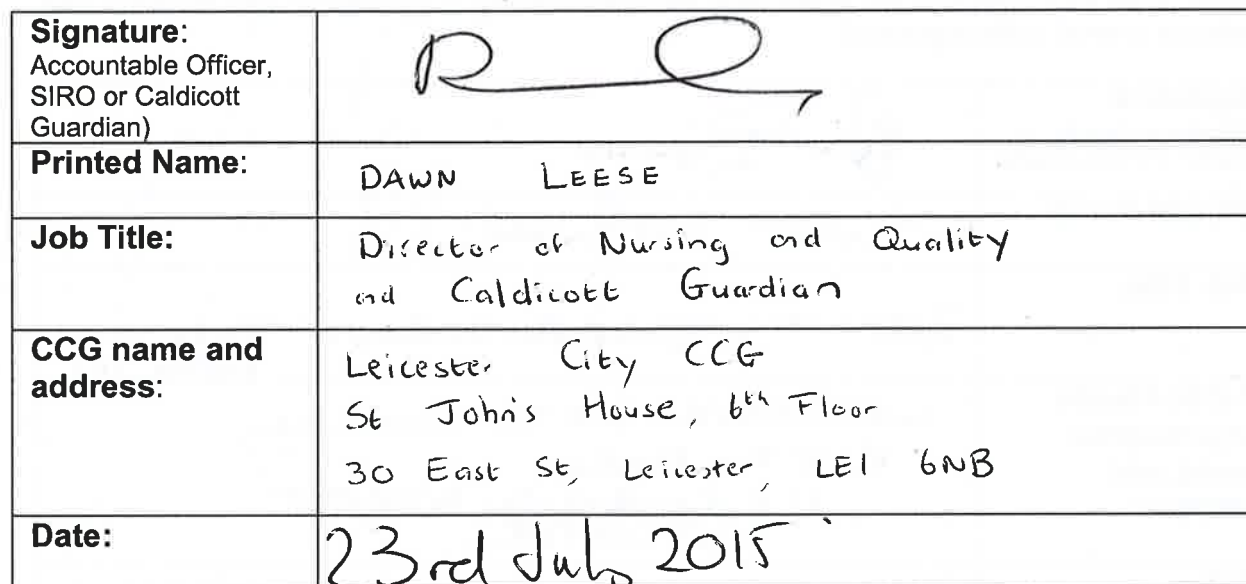 Signature:
Accountable Officer,
SIRO or Caldicott
Guardian)
Printed Name:
DAWN LEESE
Job Title:
Director of Nursing and Quality
and Caldicott Guardian
CCG name and
address:
Leicester City CCG
St John's House, 6th Floor
30 East St, Leicester, LE1 6NB
Date:
23rd July 2015